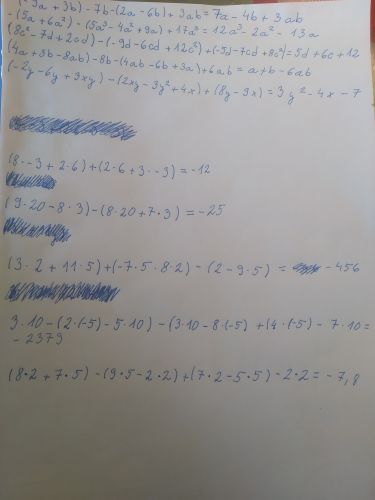 (-9a + 3b) - 7b - (2a - 6b) + 3ab = 7a - 4b + 3ab
- (5a + 6a²) - (5a³ - 4a² + 9a) + 17a³ = 12a³ - 2a² - 13a
(8c² - 7d + 2cd) - (-9d - 6cd + 12c²) + (-5d - 7cd + 8c²) = 5d + 6c + 12
(4a + 5b - 8ab) - 8b - (4ab - 6b + 3a) + 6ab = a + b - 6ab
(-2y - 6y + 9xy) - (2xy - 3y² + 4x) + (8y - 9x) = 3y² - 4x - 7
(8 · -3 + 2·6) + (2·6 + 3 · -3) = -12
(9·20 - 8·3) - (8·20 + 7·3) = -25
(3·2 + 11·5) + (-7·5·8·2) - (2 - 9·5) = - 456
3·10 - (2·(-5) - 5·10) - (3·10 - 8·(-5) + (4·(-5) - 7·10 =
- 2379
(8·2 + 7·5) - (9·5 - 2·2) + (7·2 - 5·5) - 2·2 = - 7,8